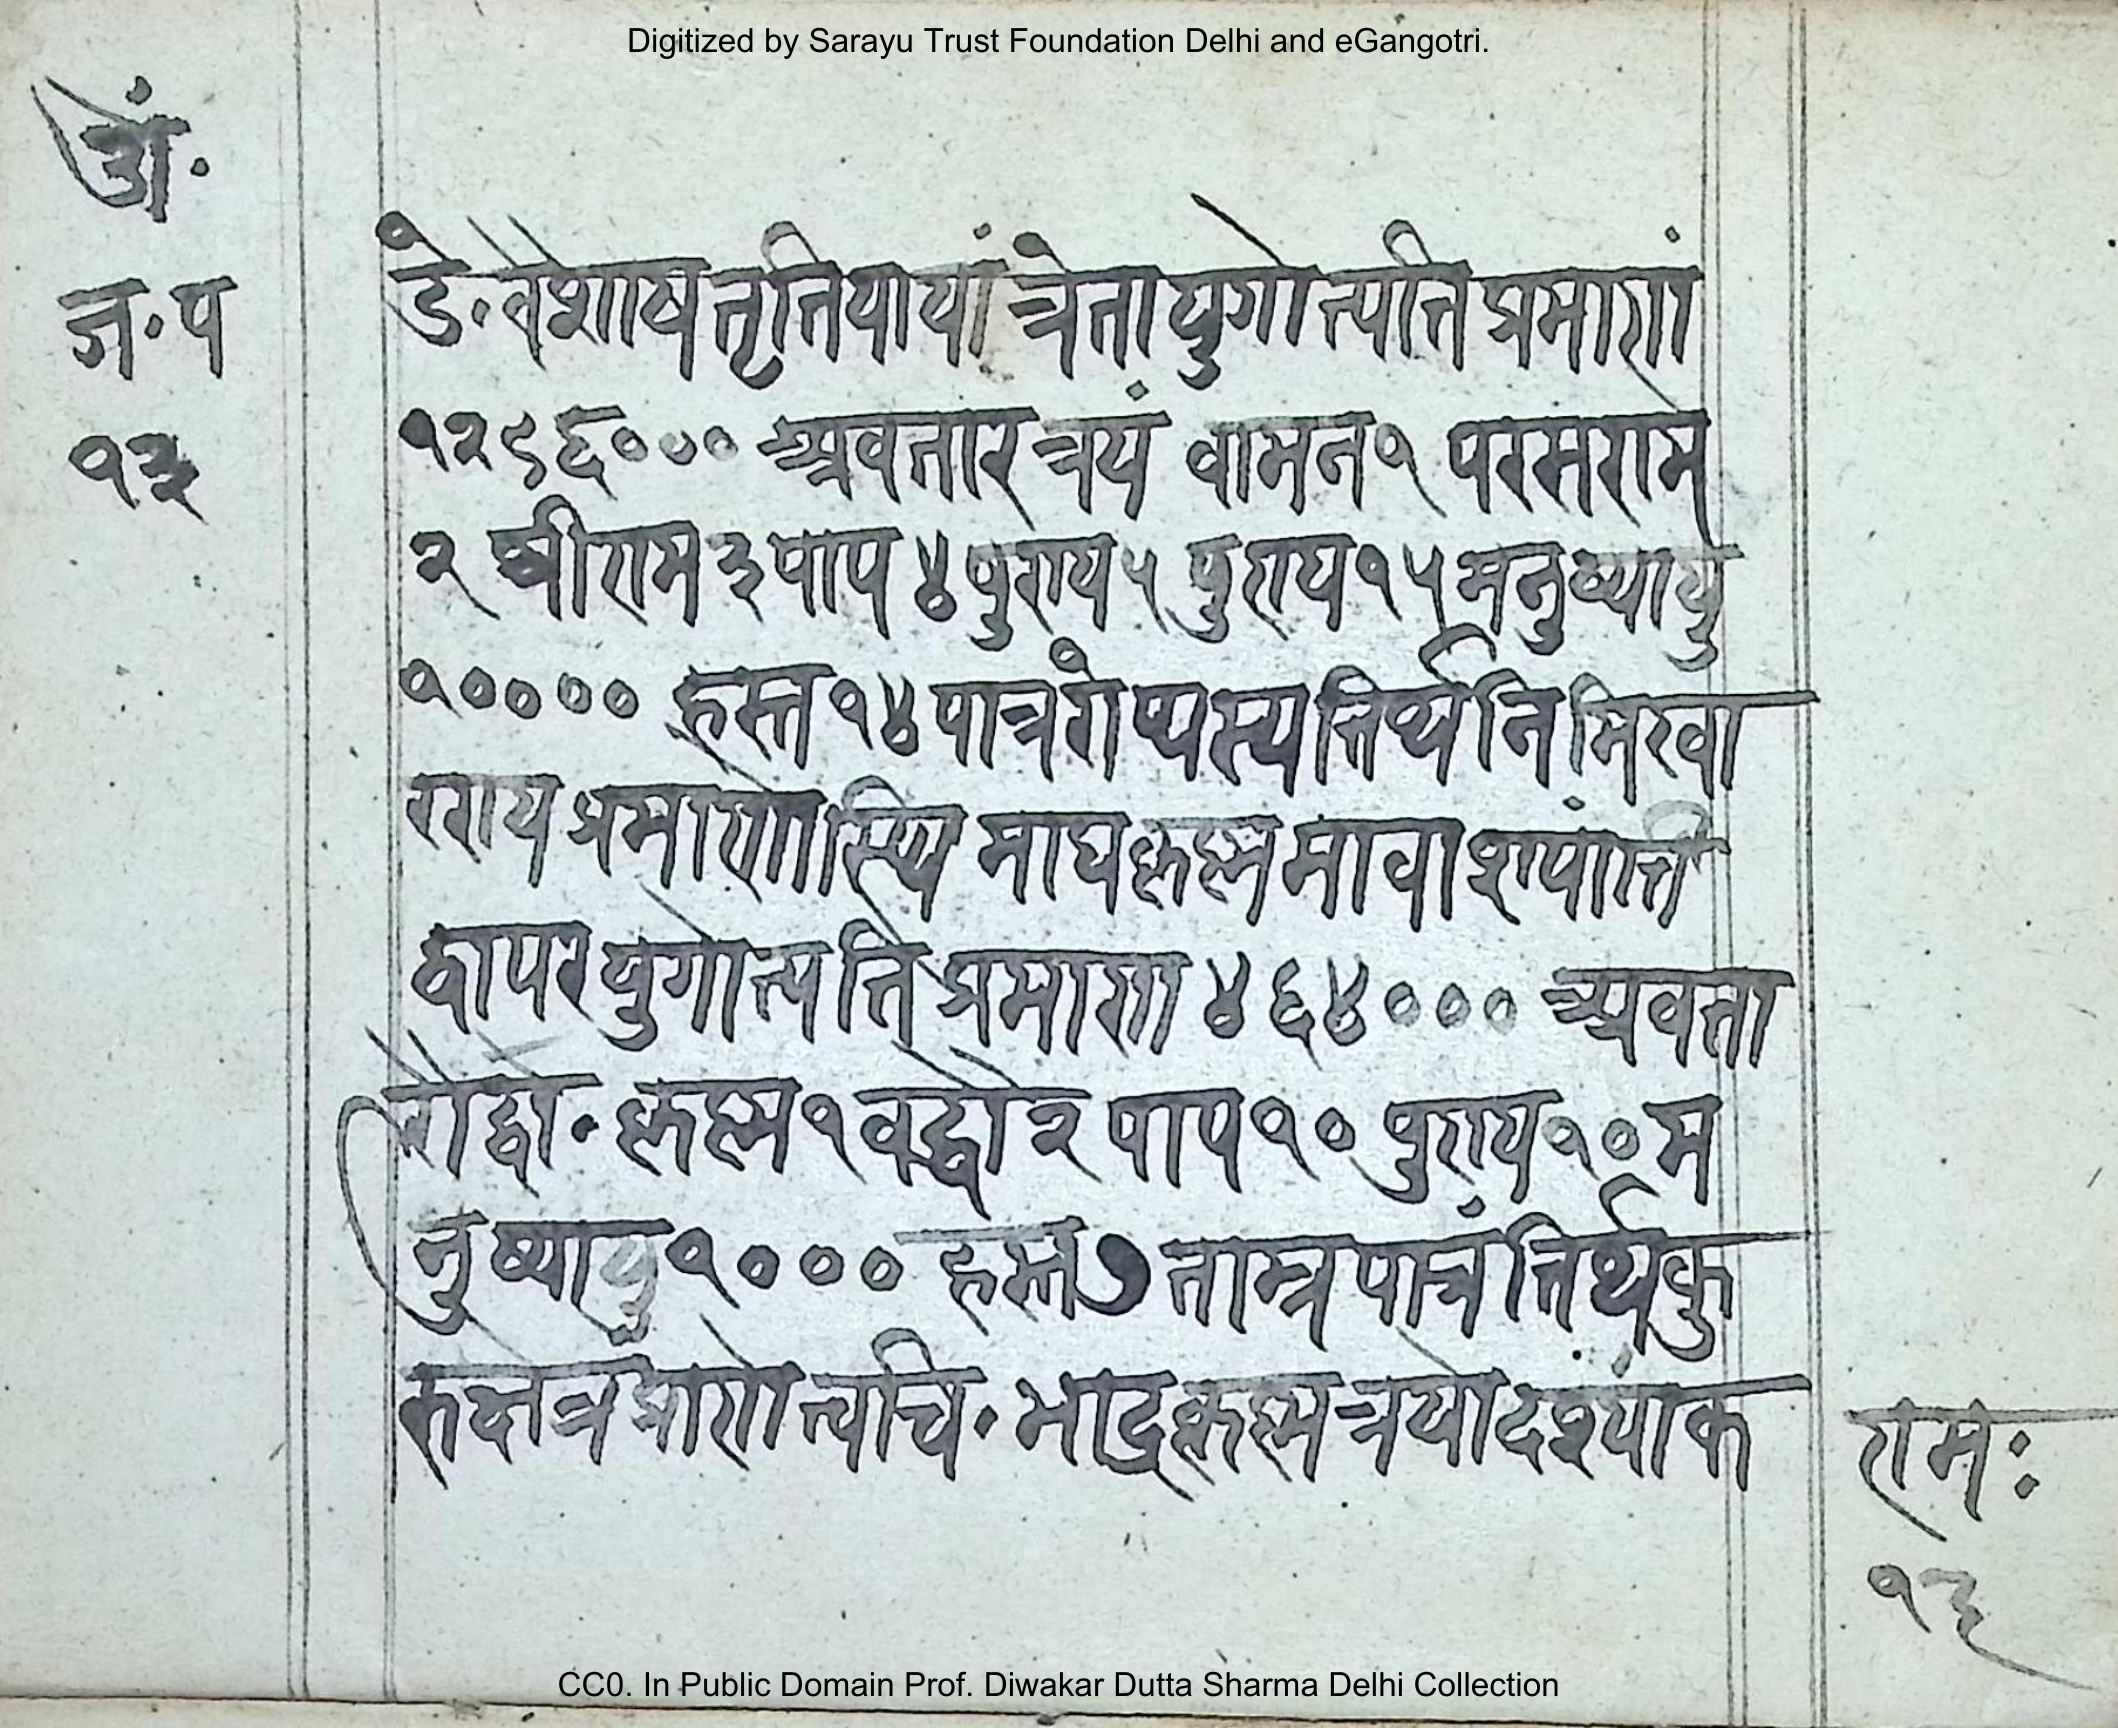 Digitized by Sarayu Trust Foundation Delhi and eGangotri.
जं॰
ज॰प
१३
डे॰वैशाष तृत्तियायां त्रेतायुगोत्पत्ति प्रमाणं
१२९६००० अवतार त्रयं वामन१ परसराम
२ श्रीराम ३ पाप ४ पुण्य ५ पुण्य १५ मनुष्यायु
१०००० हस्त १४ पात्रं रौप्यस्य तिर्थ नैमिखा
रण्य प्रमाणोस्थि माघकृष्ण मावाश्यांति
द्वापर युगोत्पत्ति प्रमाण ४६४००० अवता
रौद्वौ॰ कृष्ण१ बद्धौ२ पाप १० पुण्य १० म
नुष्यायु १००० हस्त ७ ताम्र पात्रं तिर्थ कु
रुक्षेत्रं प्राणोत्वचि॰ भाद्रकृष्ण त्रयोदश्यांक
रामः
१३
CC0. In Public Domain Prof. Diwakar Dutta Sharma Delhi Collection